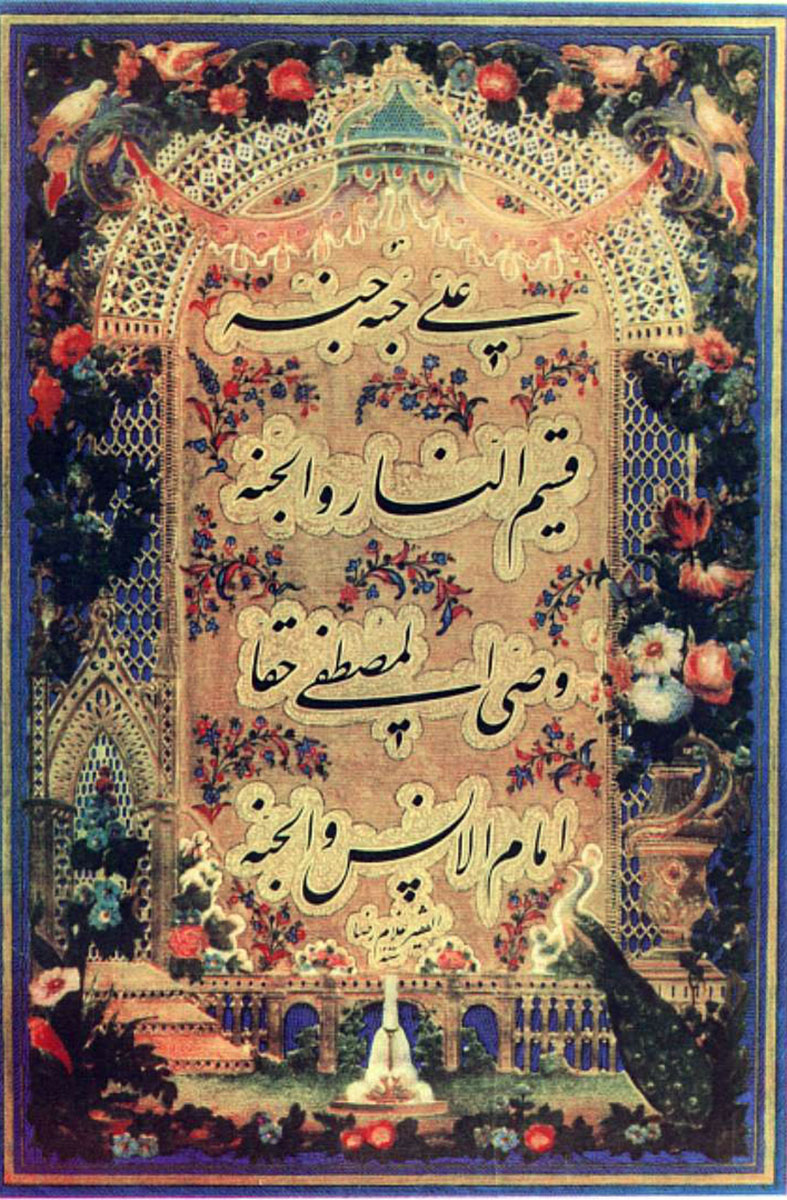 علي حبه جنه
قسيم النار والجنه
وصي المصطفى حقا
امام الانس والجنه
الفقير غلام رضا